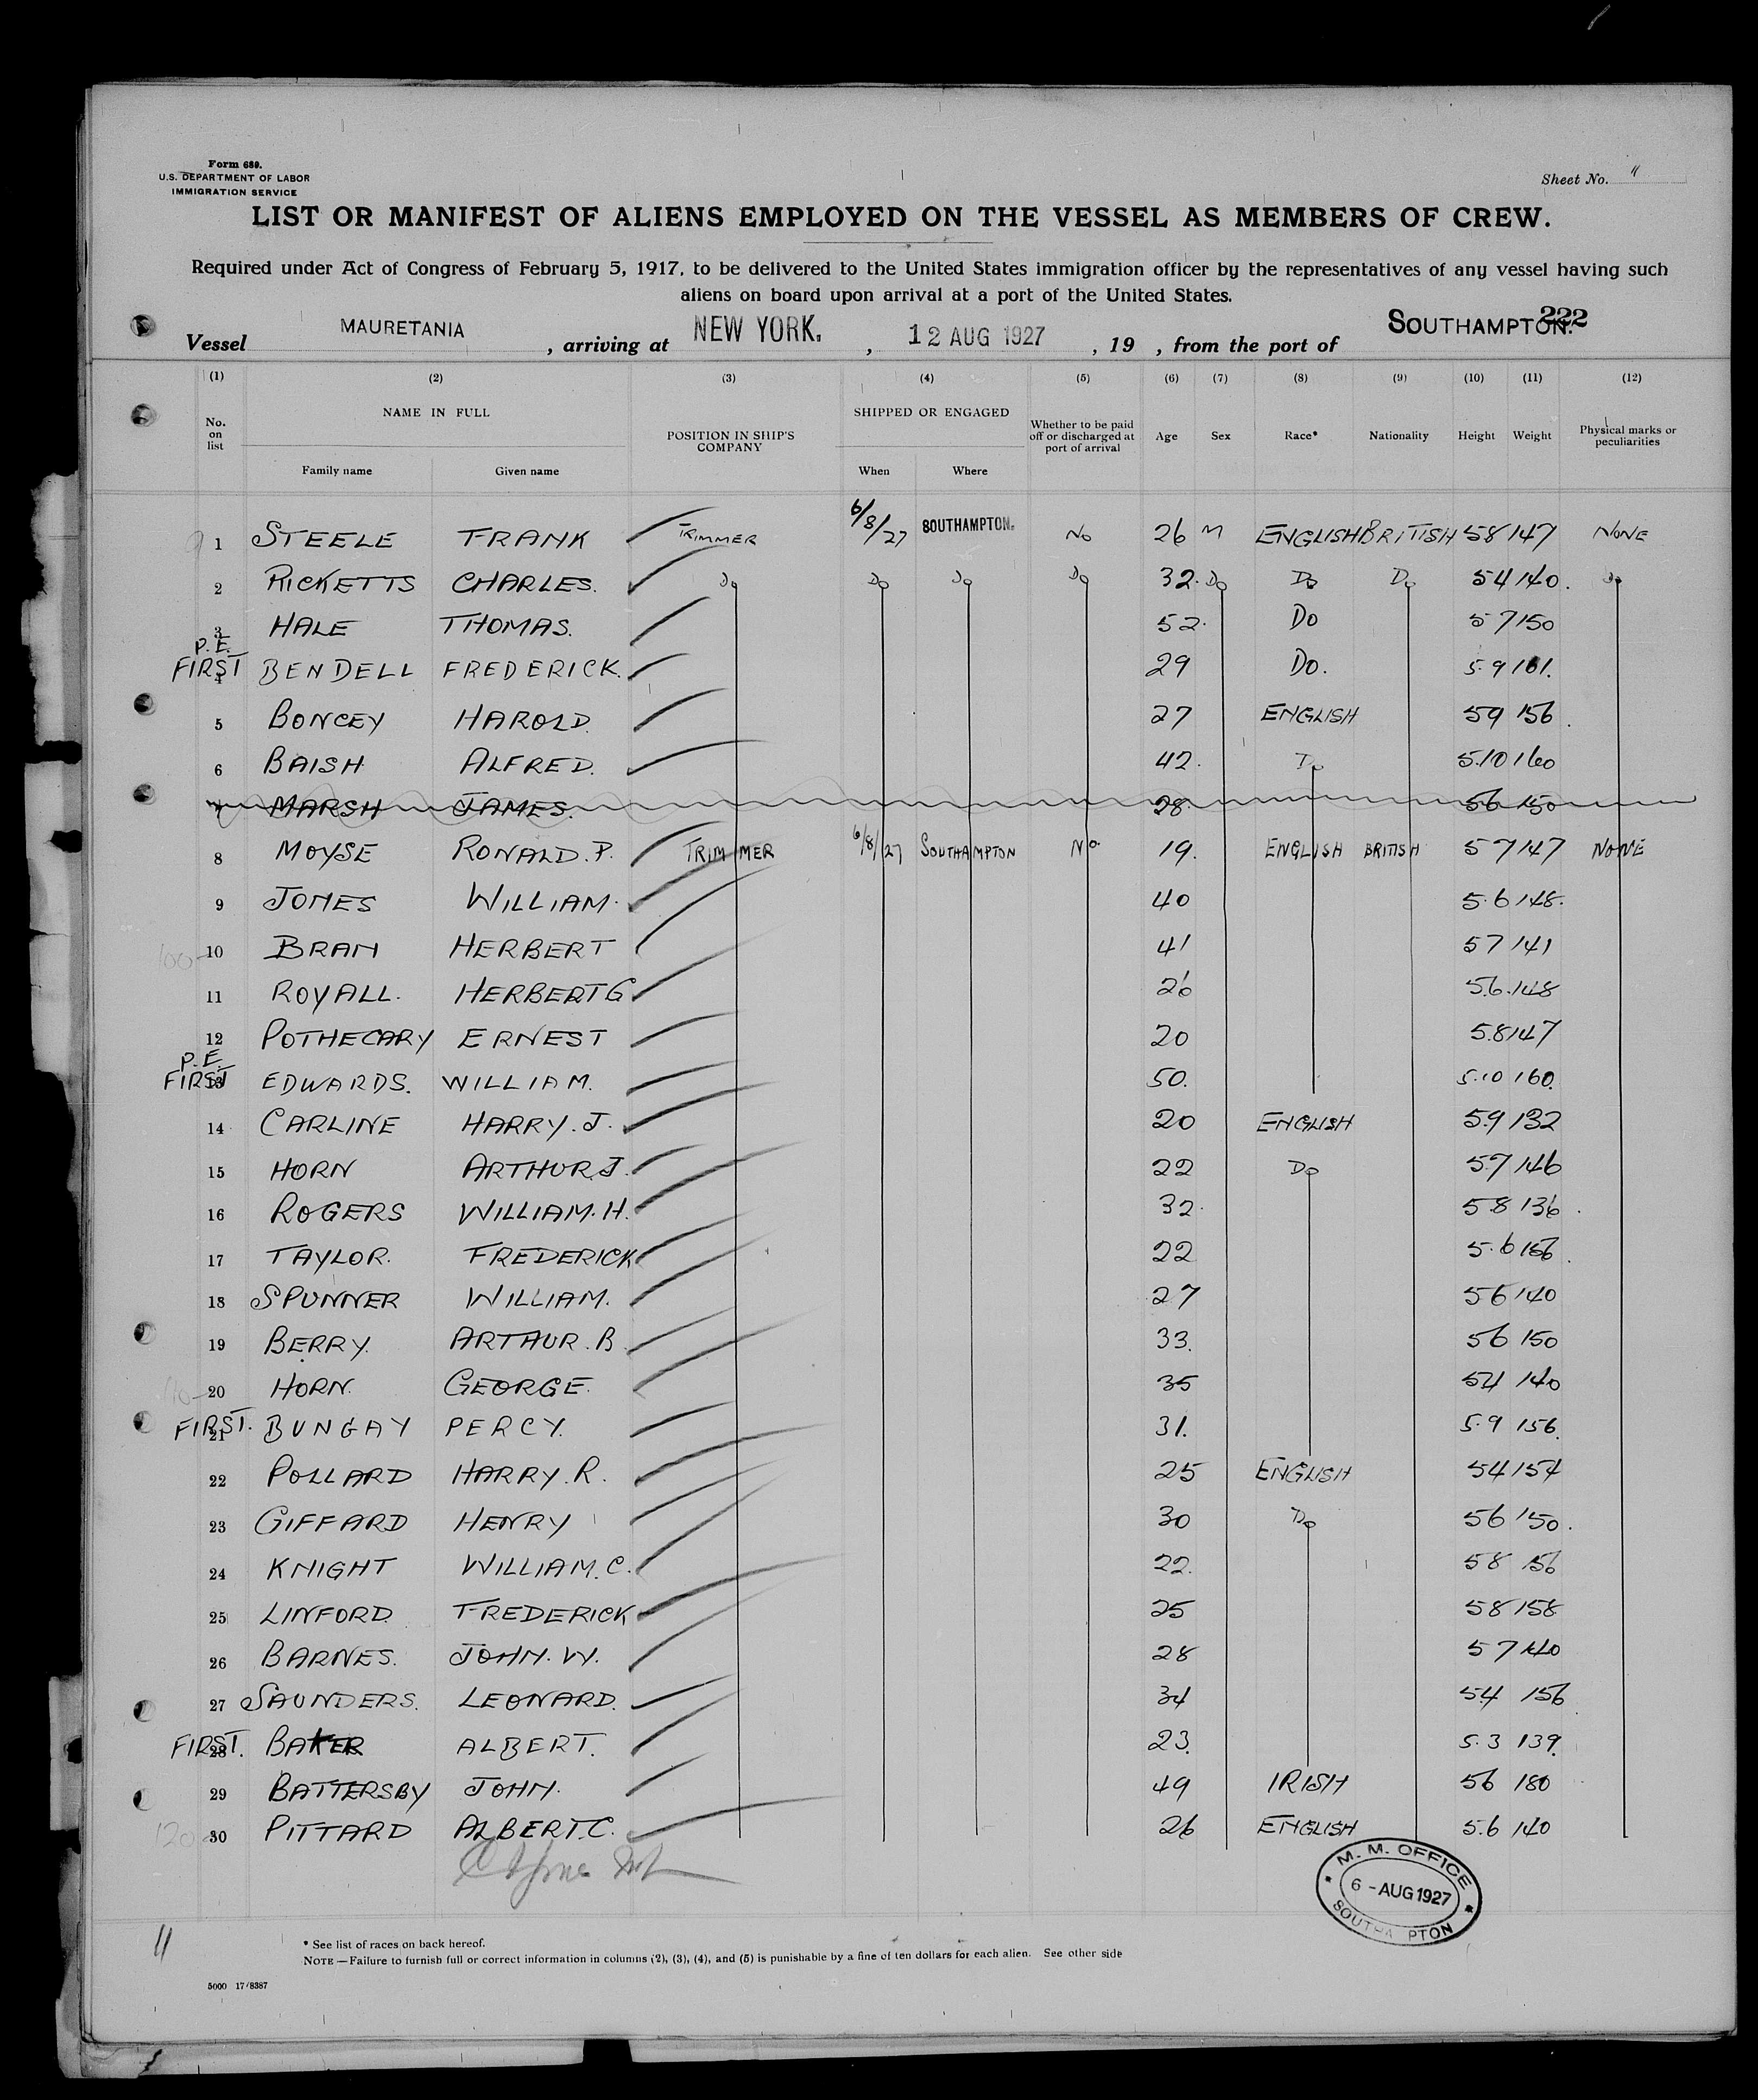 Form 689.
U.S. DEPARTMENT OF LABOR
IMMIGRATION SERVICE
Sheet No. 11
LIST OR MANIFEST OF ALIENS EMPLOYED ON THE VESSEL AS MEMBERS OF CREW.
Required under Act of Congress of February 5, 1917, to be delivered to the United States immigration officer by the representatives of any vessel having such
aliens on board upon arrival at a port of the United States.
222
Vessel MAURETANIA, arriving at NEW YORK. , 12 AUG 1927, 19 , from the port of SOUTHAMPTON.
(1) (2) (3) (4) (5) (6) (7) (8) (9) (10) (11) (12)
No. on list NAME IN FULL POSITION IN SHIP'S COMPANY SHIPPED OR ENGAGED Whether to be paid off or discharged at port of arrival Age Sex Race* Nationality Height Weight Physical marks or peculiarities
Family name Given name When Where
1 STEELE FRANK TRIMMER 6/8/27 SOUTHAMPTON. No 26 M ENGLISH BRITISH 58 147 NONE
2 RICKETTS CHARLES. Do Do Do Do 32. Do Do Do 54 140. Do
3 HALE THOMAS. 52. Do 57 150
P.E. FIRST 4 BENDELL FREDERICK. 29 Do. 5.9 161.
5 BONCEY HAROLD. 27 ENGLISH 59 156.
6 BAISH ALFRED. 42. Do 5.10 160
7 MARSH JAMES. 28. 56 150
8 MOYSE RONALD.P. TRIMMER 6/8/27 SOUTHAMPTON No. 19. ENGLISH BRITISH 57 147 NONE
9 JONES WILLIAM. 40 5.6 148.
10 BRAN HERBERT 41 57 141
11 ROYALL. HERBERT G 26 5.6. 148
12 POTHECARY ERNEST 20 5.8 147
P.E. FIRST 13 EDWARDS. WILLIAM. 50. 5.10 160.
14 CARLINE HARRY.J. 20 ENGLISH 59 132
15 HORN ARTHUR.J. 22 Do 5.7 146
16 ROGERS WILLIAM.H. 32. 58 136.
17 TAYLOR. FREDERICK 22 5.6 156.
18 SPUNNER WILLIAM. 27 56 140
19 BERRY. ARTHUR.B. 33. 56 150
20 HORN. GEORGE. 35 54 140
FIRST. 21 BUNGAY PERCY. 31. 5.9 156.
22 POLLARD HARRY.R. 25 ENGLISH 54 154
23 GIFFARD HENRY 30 Do 56 150.
24 KNIGHT WILLIAM.C. 22. 58 156
25 LINFORD. FREDERICK 25 58 158
26 BARNES. JOHN.W. 28 57 140
27 SAUNDERS. LEONARD. 34 54 156
FIRST. 28 BAKER ALBERT. 23. 5.3 139.
29 BATTERSBY JOHN. 49 IRISH 56 180
30 PITTARD ALBERT.C. 26 ENGLISH 5.6 140
M. M. OFFICE
6 - AUG 1927
SOUTHA PTON
11
* See list of races on back hereof.
NOTE — Failure to furnish full or correct information in columns (2), (3), (4), and (5) is punishable by a fine of ten dollars for each alien. See other side
5000 17/8387